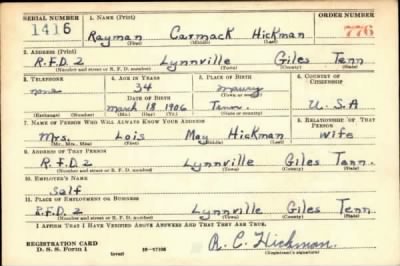 SERIAL NUMBER 1. NAME (Print) ORDER NUMBER
1416 Rayman Carmack Hickman 776
(First) (Middle) (Last)
2. ADDRESS (Print)
R.F.D. 2 Lynnville Giles Tenn
(Number and street or R. F. D. number) (Town) (County) (State)
3. TELEPHONE 4. AGE IN YEARS 5. PLACE OF BIRTH 6. COUNTRY OF CITIZENSHIP
none 34 Maury
DATE OF BIRTH (Town or county)
March 18 1906 Tenn. U.S.A
(Exchange) (Number) (Mo.) (Day) (Yr.) (State or country)
7. NAME OF PERSON WHO WILL ALWAYS KNOW YOUR ADDRESS 8. RELATIONSHIP OF THAT PERSON
Mrs. Lois May Hickman Wife
(Mr., Mrs., Miss) (First) (Middle) (Last)
9. ADDRESS OF THAT PERSON
R.F.D. 2 Lynnville Giles Tenn.
(Number and street or R. F. D. number) (Town) (County) (State)
10. EMPLOYER'S NAME
Self
11. PLACE OF EMPLOYMENT OR BUSINESS
R.F.D. 2 Lynnville Giles Tenn
(Number and street or R. F. D. number) (Town) (County) (State)
I AFFIRM THAT I HAVE VERIFIED ABOVE ANSWERS AND THAT THEY ARE TRUE.
REGISTRATION CARD R. C. Hickman.
D. S. S. Form 1 (over) 16—17105 (Registrant's signature)